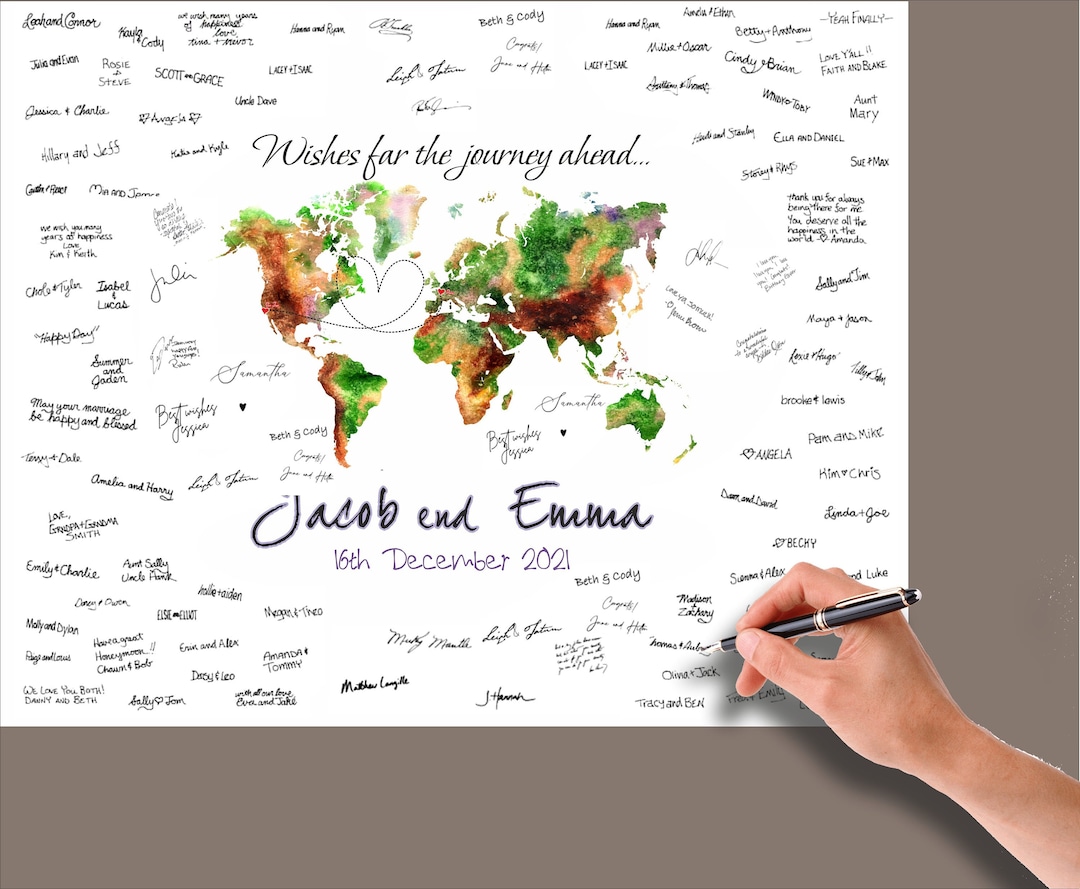 Leah and Connor
Kayla
& Cody
we wish many years
of happiness
love,
tina + trevor
Hanna and Ryan
Beth & Cody
Congrats!
Jane and
Hanna and Ryan
Amelia & Ethan
Betty + Anthony
—YEAH FINALLY—
Julia and Evan
ROSIE
&
STEVE
SCOTT and GRACE
LACEY + ISAAC
Leigh & Tatum
LACEY + ISAAC
Millie + Oscar
Cindy & Brian
LOVE Y'ALL!!
FAITH AND BLAKE
Jessica & Charlie
Angela
Uncle Dave
& Thomas
WINDY & TOBY
Aunt
Mary
Hillary and Jeff
Katie and Kyle
Wishes far the journey ahead...
Heidi and Stanley
ELLA AND DANIEL
Caitlin & React
MIA AND
Storey & RHYS
SUE & MAX
we wish you many
years of happiness
Love,
Kim & Keith
thank you for always
being there for me
You deserve all the
happiness in the
world - Amanda
Chole & Tyler
Isabel
&
Lucas
Julie
Sally and Tim
"Happy Day"
Maya & Jason
Summer
and
Jaden
Samantha
Lexie & Hugo
Tilly & John
May your marriage
be happy and blessed
Best wishes
Jessica
Samantha
Best wishes
Jessica
brooke & lewis
Tessy & Dale
Beth & Cody
Congrats!
Jane and
PAM AND MIKE
ANGELA
Amelia and Harry
Leigh & Tatum
Kim Chris
LOVE,
GRANDPA + GRANDMA
SMITH
Jacob end Emma
16th December 2021
and David
Linda + Joe
BECKY
Emily & Charlie
Aunt Sally
Uncle Hank
Beth & Cody
Sienna & Alex
and Luke
Daisy & Owen
hollie + aiden
Congrats!
Jane and
Madison
&
Zachary
Molly and Dylan
ELSIE and ELLIOT
Megan & Theo
Micky Mantle
Leigh & Tatum
Thomas & Aubrey
Paige and Louis
Have a great
Honeymoon..!!
Chaun & Bob
Erin and Alex
AMANDA &
TOMMY
Daisy & Leo
Matthew Langille
Olivia + Jack
WE LOVE YOU BOTH!
DANNY AND BETH
Sally Tom
with all our love
Eva and Jake
J Hannah
Tracy and BEN
Emily